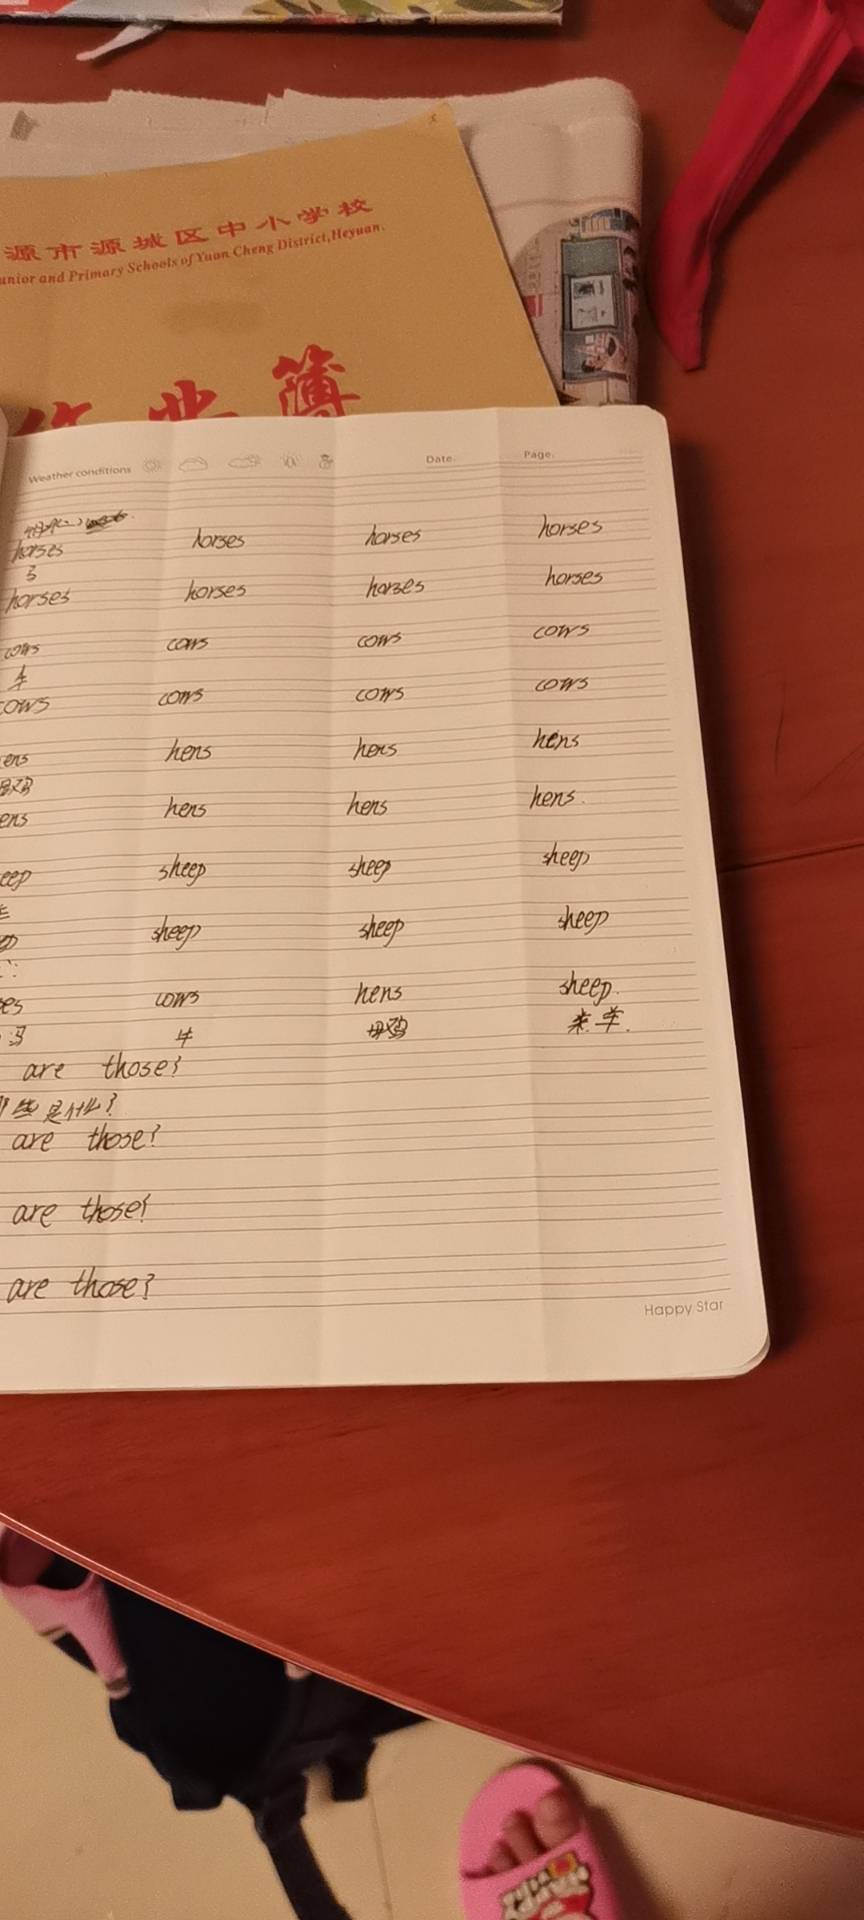 源市源城区中小学校
unior and Primary Schools of Yuan Cheng District,Heyuan.
作业簿
Weather conditions Date. Page.
horses horses horses horses
马
horses horses horses horses
cows cows cows cows
牛
cows cows cows cows
ens hens hens hens
母鸡
ens hens hens hens.
eep sheep sheep sheep
sheep sheep sheep
es cows hens sheep.
马 牛 母鸡 羊.
are those?
些是什么?
are those?
are those?
are those?
Happy Star